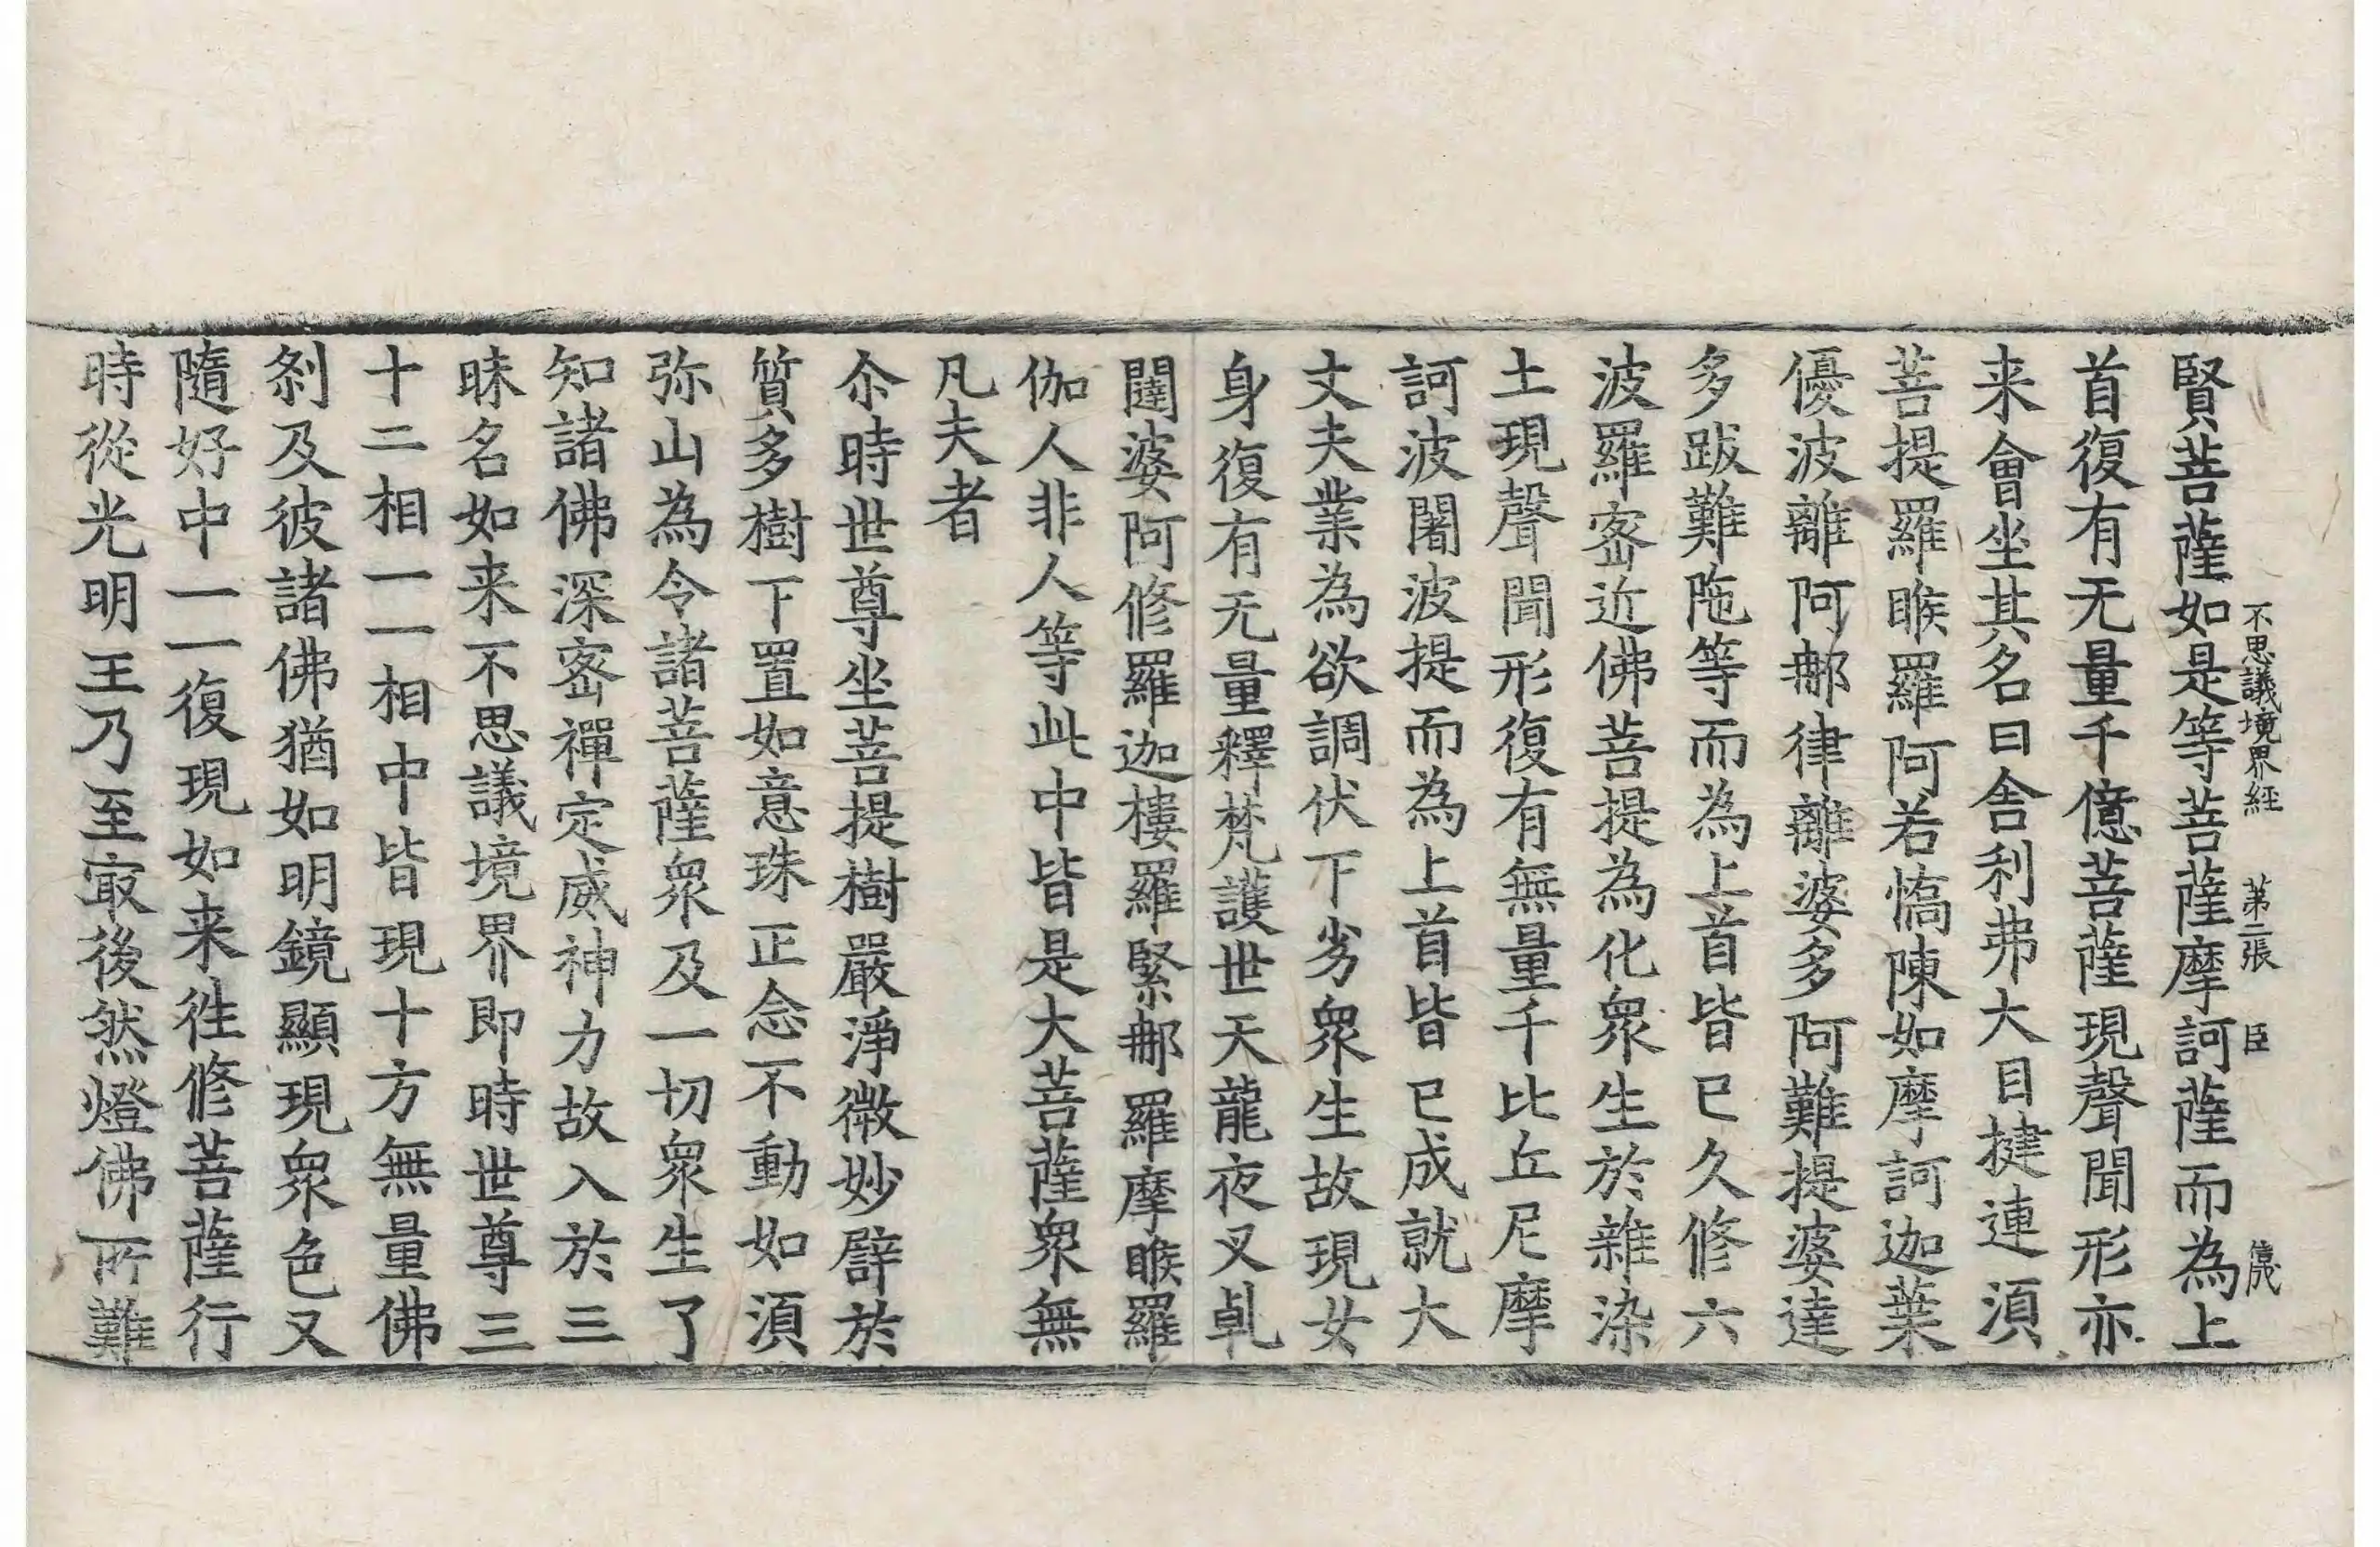 不思議境界経 苐二張 臣
賢菩薩如是等菩薩摩訶薩而為上
首復有无量千億菩薩現聲聞形亦
来會坐其名曰舎利弗大目揵連湏
菩提羅睺羅阿若憍陳如摩訶迦葉
優波離阿那律離婆多阿難提婆達
多跋難陁等而為上首皆已久修六
波羅宻近佛菩提為化衆生於雜染
土現聲聞形復有無量千比丘尼摩
訶波闍波提而為上首皆已成就大
丈夫業為欲調伏下劣衆生故現女
身復有无量釋梵護世天龍夜叉乹
闥婆阿修羅迦樓羅緊那羅摩睺羅
伽人非人等此中皆是大菩薩衆無
凡夫者
尒時世尊坐菩提樹嚴淨微妙辟於
質多樹下置如意珠正念不動如湏
弥山為令諸菩薩衆及一切衆生了
知諸佛深宻禪定威神力故入於三
昧名如来不思議境界即時世尊三
十二相一一相中皆現十方無量佛
刹及彼諸佛猶如明鏡顯現衆色又
隨好中一一復現如来徃修菩薩行
時從光明王乃至㝡後然燈佛所難